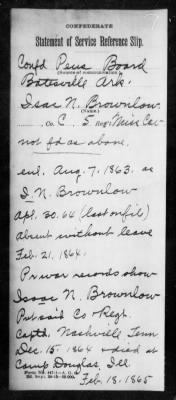 CONFEDERATE
Statement of Service Reference Slip.
Confd Pens Board
(Source of communication.)
Batesville Ark.
Isac N. Brownlow
(Name.)
Co. C, 5 Reg't Miss Cav
not fd as above.
enl. Aug. 7, 1863. as
I. N. Brownlow
Apl. 30. 64 (last on file)
absent without leave
Feb. 21, 1864.
Pr war records show
Isaac N. Brownlow
Pvt said Co & Regt.
Captd. Nashville Tenn
Dec. 15, 1864 & died at
Camp Douglas, Ill.
Feb. 18. 1865